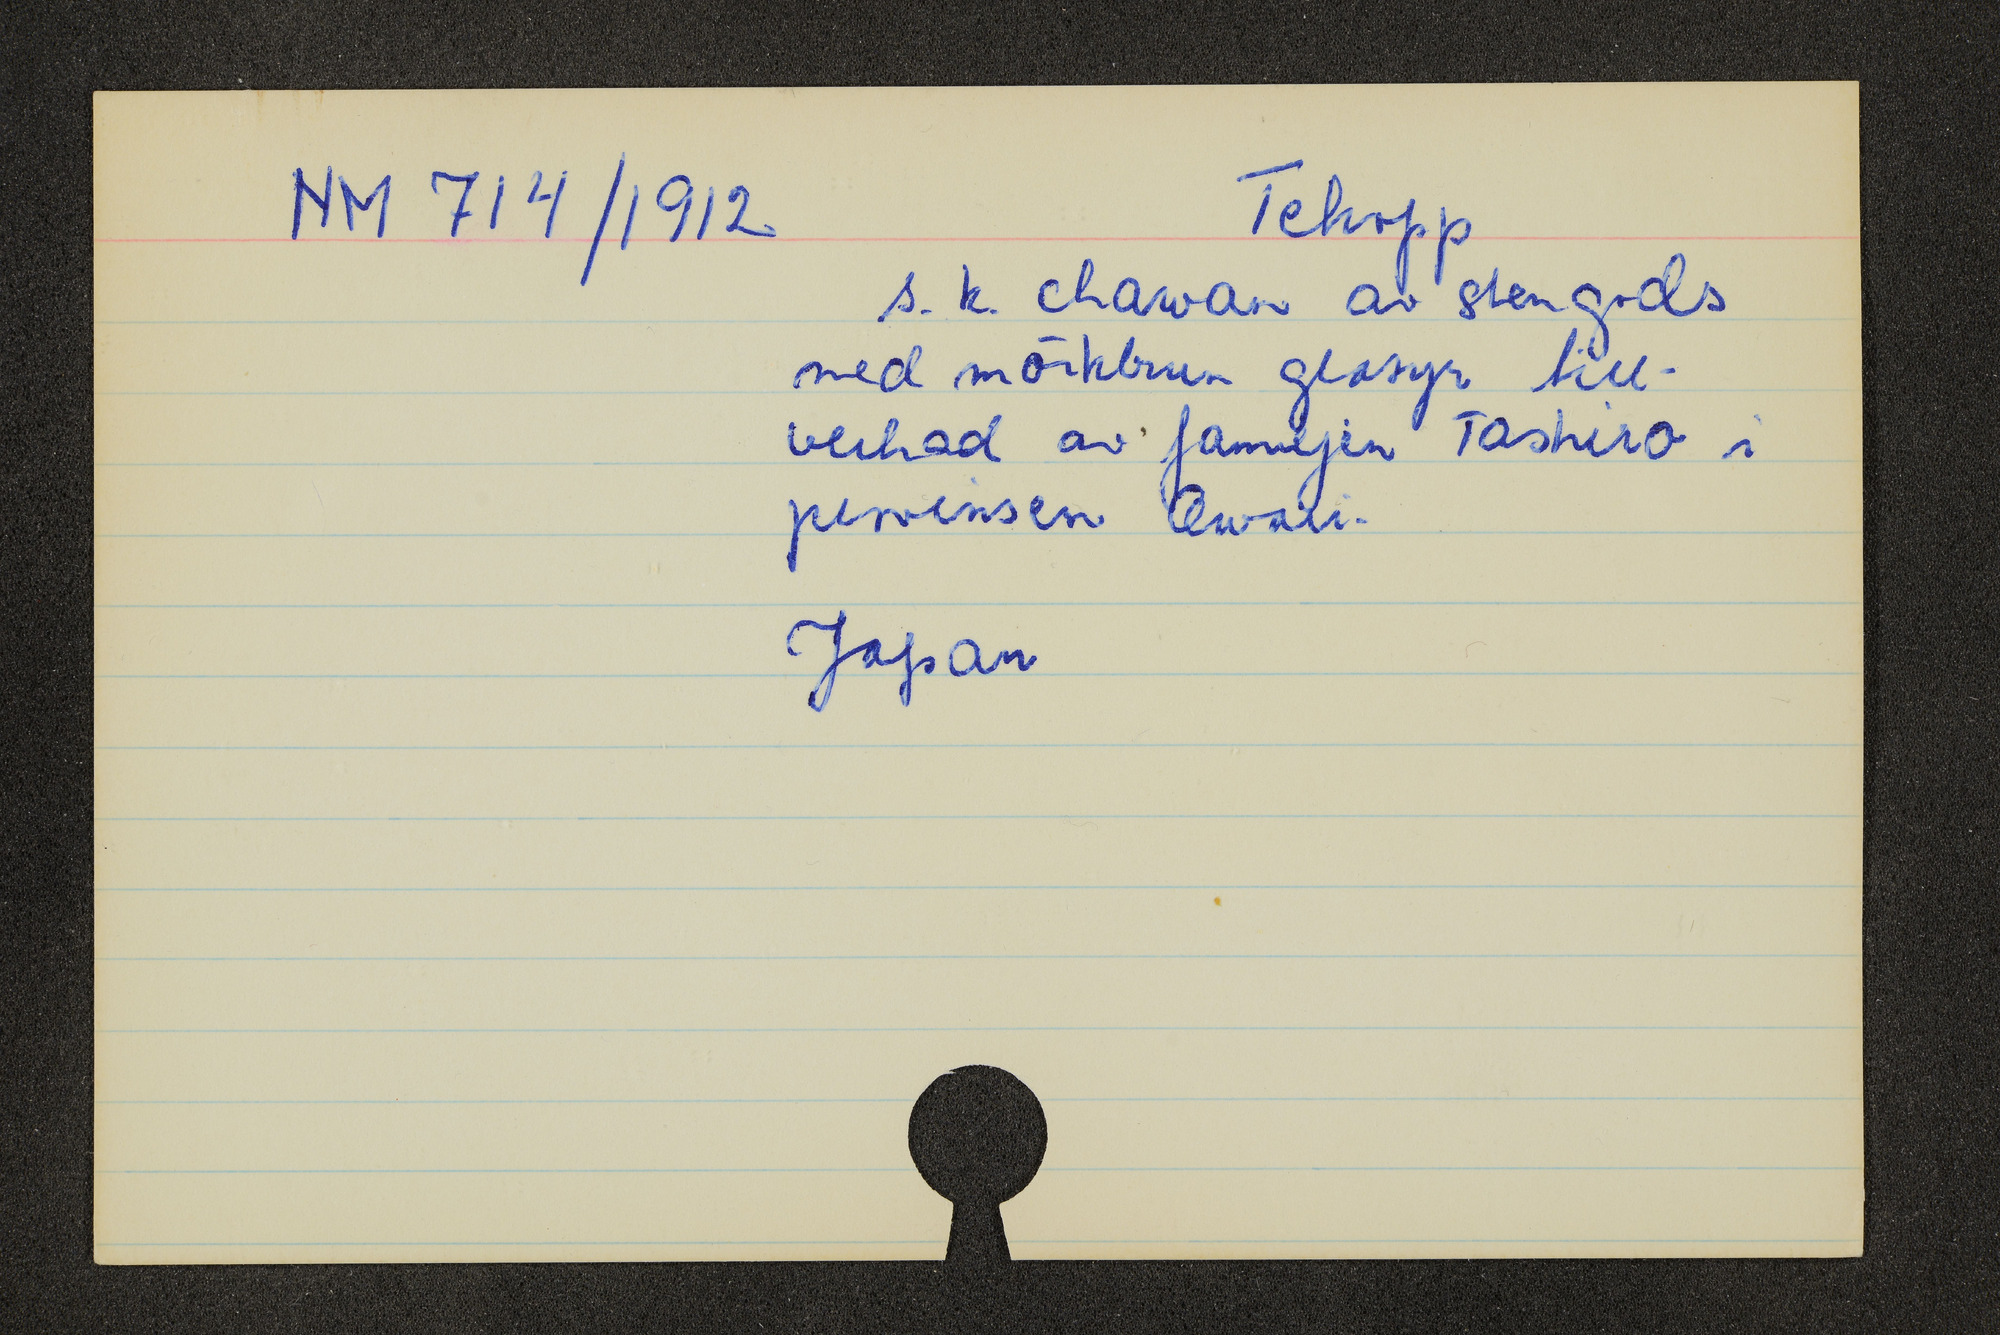 NM 714/1912 Tekopp
s.k. chawan av stengods
med mörkbrun glasyr till-
verkad av familjen Tashiro i
provinsen Owari.
Japan